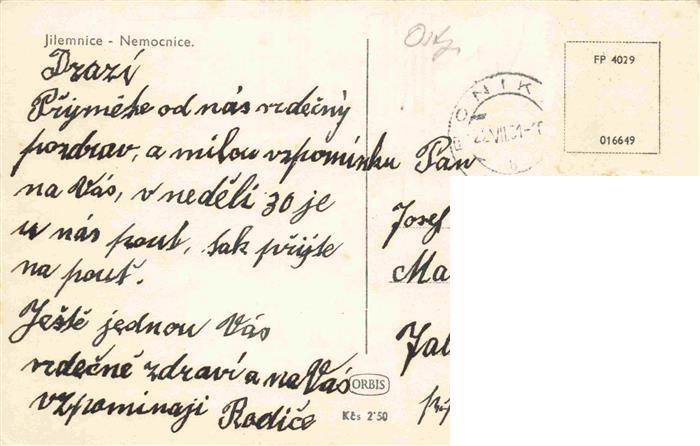 Jilemnice - Nemocnice.
Drazí
Přijměte od nás srdečný
pozdrav, a milou vzpomínku
na Vás, v neděli 30 je
u nás pout, tak přijte
na pout.
Ještě jednou Vás
srdečně zdraví a na Vás
vzpominaji Rodiče
ORBIS
Kčs 2'50
FP 4029
016649
ONIK
Pan
Josef
Ma